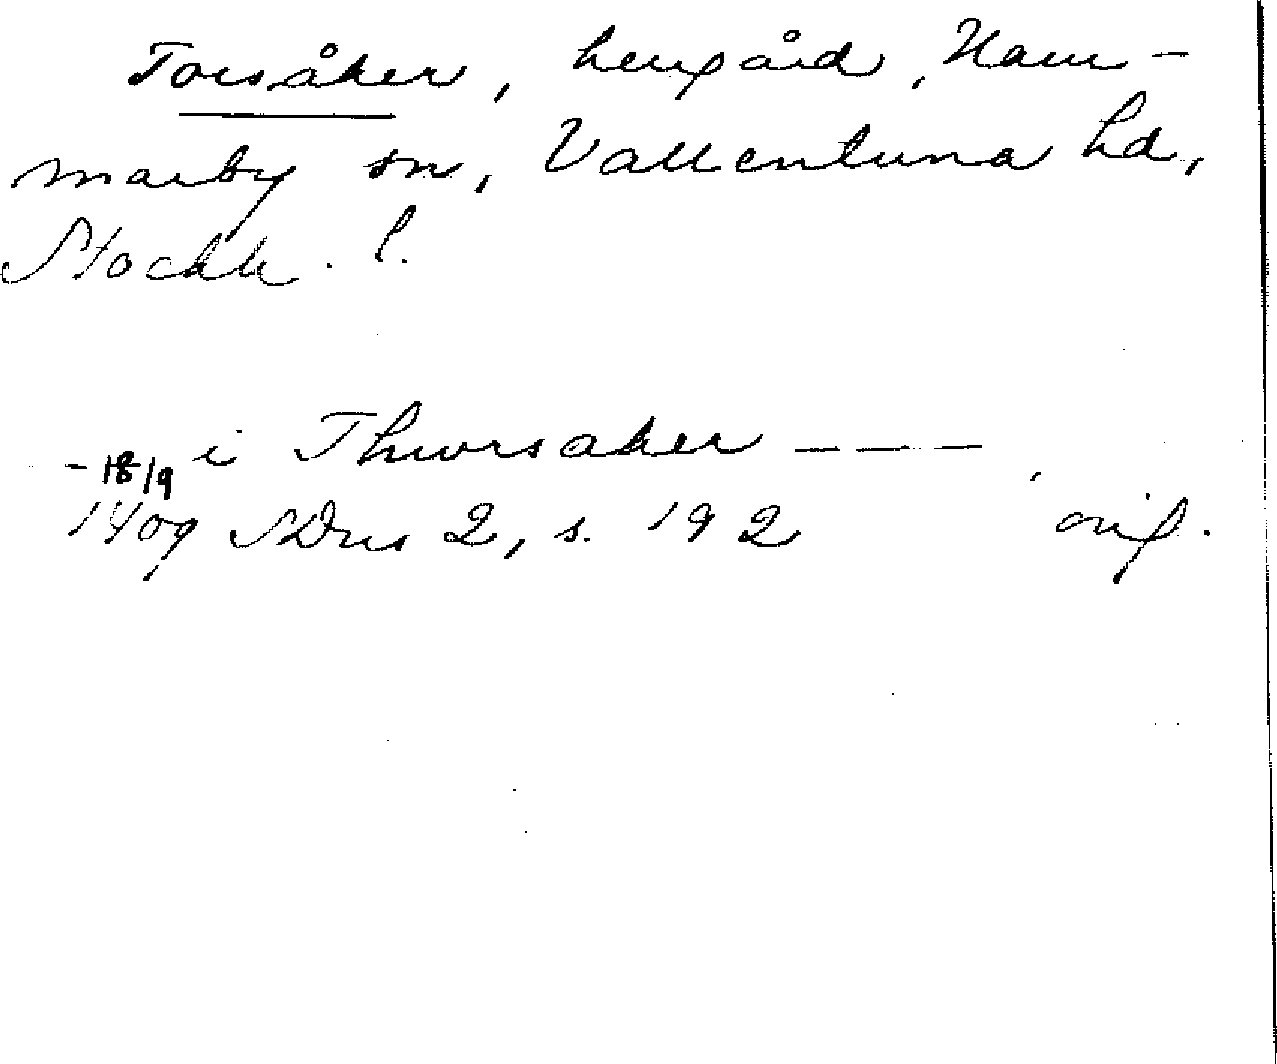 Torsåker, herrgård, Ham-
marby sn, Vallentuna hd,
Stockh. l.
i Thursaker ----
-18/9
1409 SDns 2, s. 192 orig.